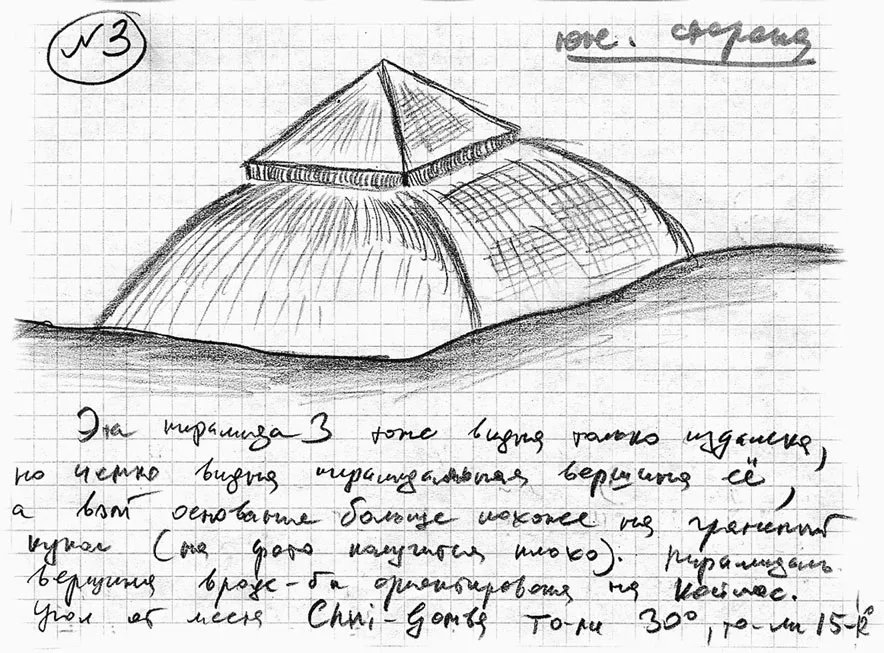 №3
юж. сторона
Эта пирамида 3 тоже видна только издалека,
но четко видна пирамидальная вершина её,
а вот основание больше похоже на граненый
купол (на фото получится плохо). Пирамидаль
вершина вроде-бы ориентирована на Кайлас.
Угол от места Chui-Gomba то-ли 30°, то-ли 15-